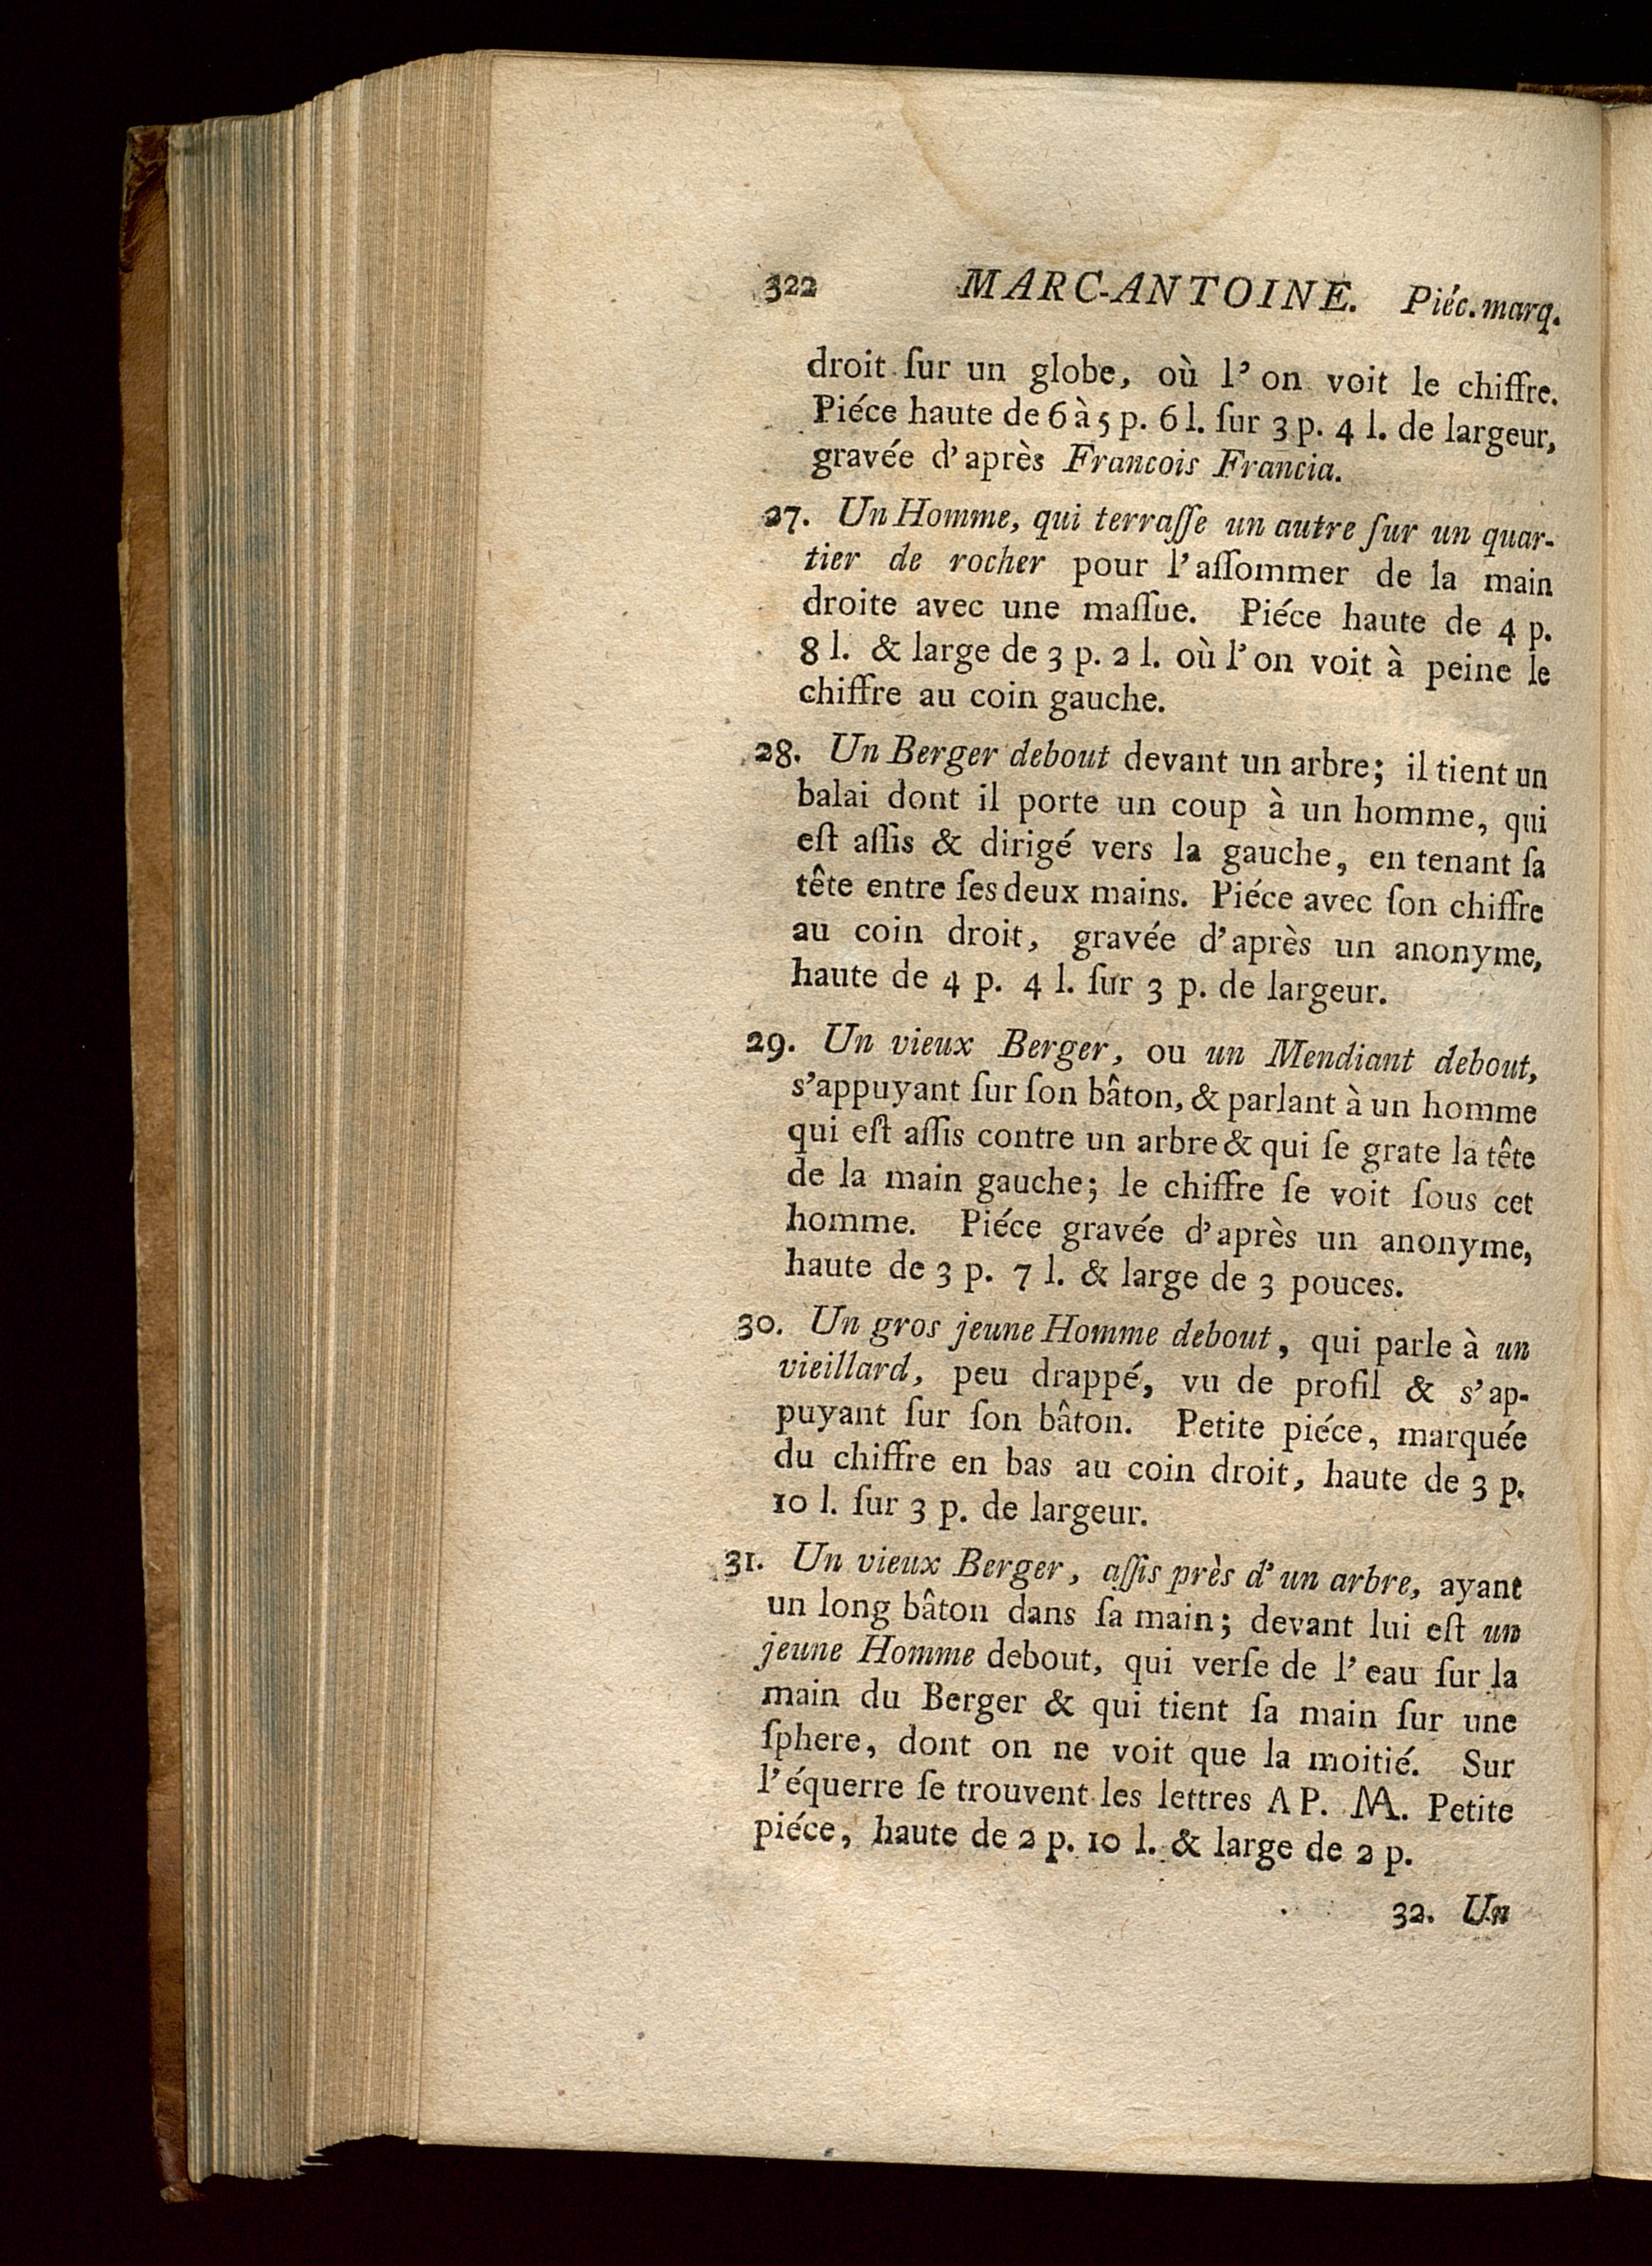 322 MARC-ANTOINE. Piéc. marq.
droit ſur un globe, où l'on voit le chiffre.
Piéce haute de 6 à 5 p. 6 l. ſur 3 p. 4 l. de largeur,
gravée d'après Francois Francia.
27. Un Homme, qui terraſſe un autre ſur un quar-
tier de rocher pour l'aſſommer de la main
droite avec une maſſue. Piéce haute de 4 p.
8 l. & large de 3 p. 2 l. où l'on voit à peine le
chiffre au coin gauche.
28. Un Berger debout devant un arbre; il tient un
balai dont il porte un coup à un homme, qui
eſt aſſis & dirigé vers la gauche, en tenant ſa
tête entre ſes deux mains. Piéce avec ſon chiffre
au coin droit, gravée d'après un anonyme,
haute de 4 p. 4 l. ſur 3 p. de largeur.
29. Un vieux Berger, ou un Mendiant debout,
s'appuyant ſur ſon bâton, & parlant à un homme
qui eſt aſſis contre un arbre & qui ſe grate la tête
de la main gauche; le chiffre ſe voit ſous cet
homme. Piéce gravée d'après un anonyme,
haute de 3 p. 7 l. & large de 3 pouces.
30. Un gros jeune Homme debout, qui parle à un
vieillard, peu drappé, vu de profil & s'ap-
puyant ſur ſon bâton. Petite piéce, marquée
du chiffre en bas au coin droit, haute de 3 p.
10 l. ſur 3 p. de largeur.
31. Un vieux Berger, aſſis près d'un arbre, ayant
un long bâton dans ſa main; devant lui eſt un
jeune Homme debout, qui verſe de l'eau ſur la
main du Berger & qui tient ſa main ſur une
ſphere, dont on ne voit que la moitié. Sur
l'équerre ſe trouvent les lettres AP. MA. Petite
piéce, haute de 2 p. 10 l. & large de 2 p.
32. Un